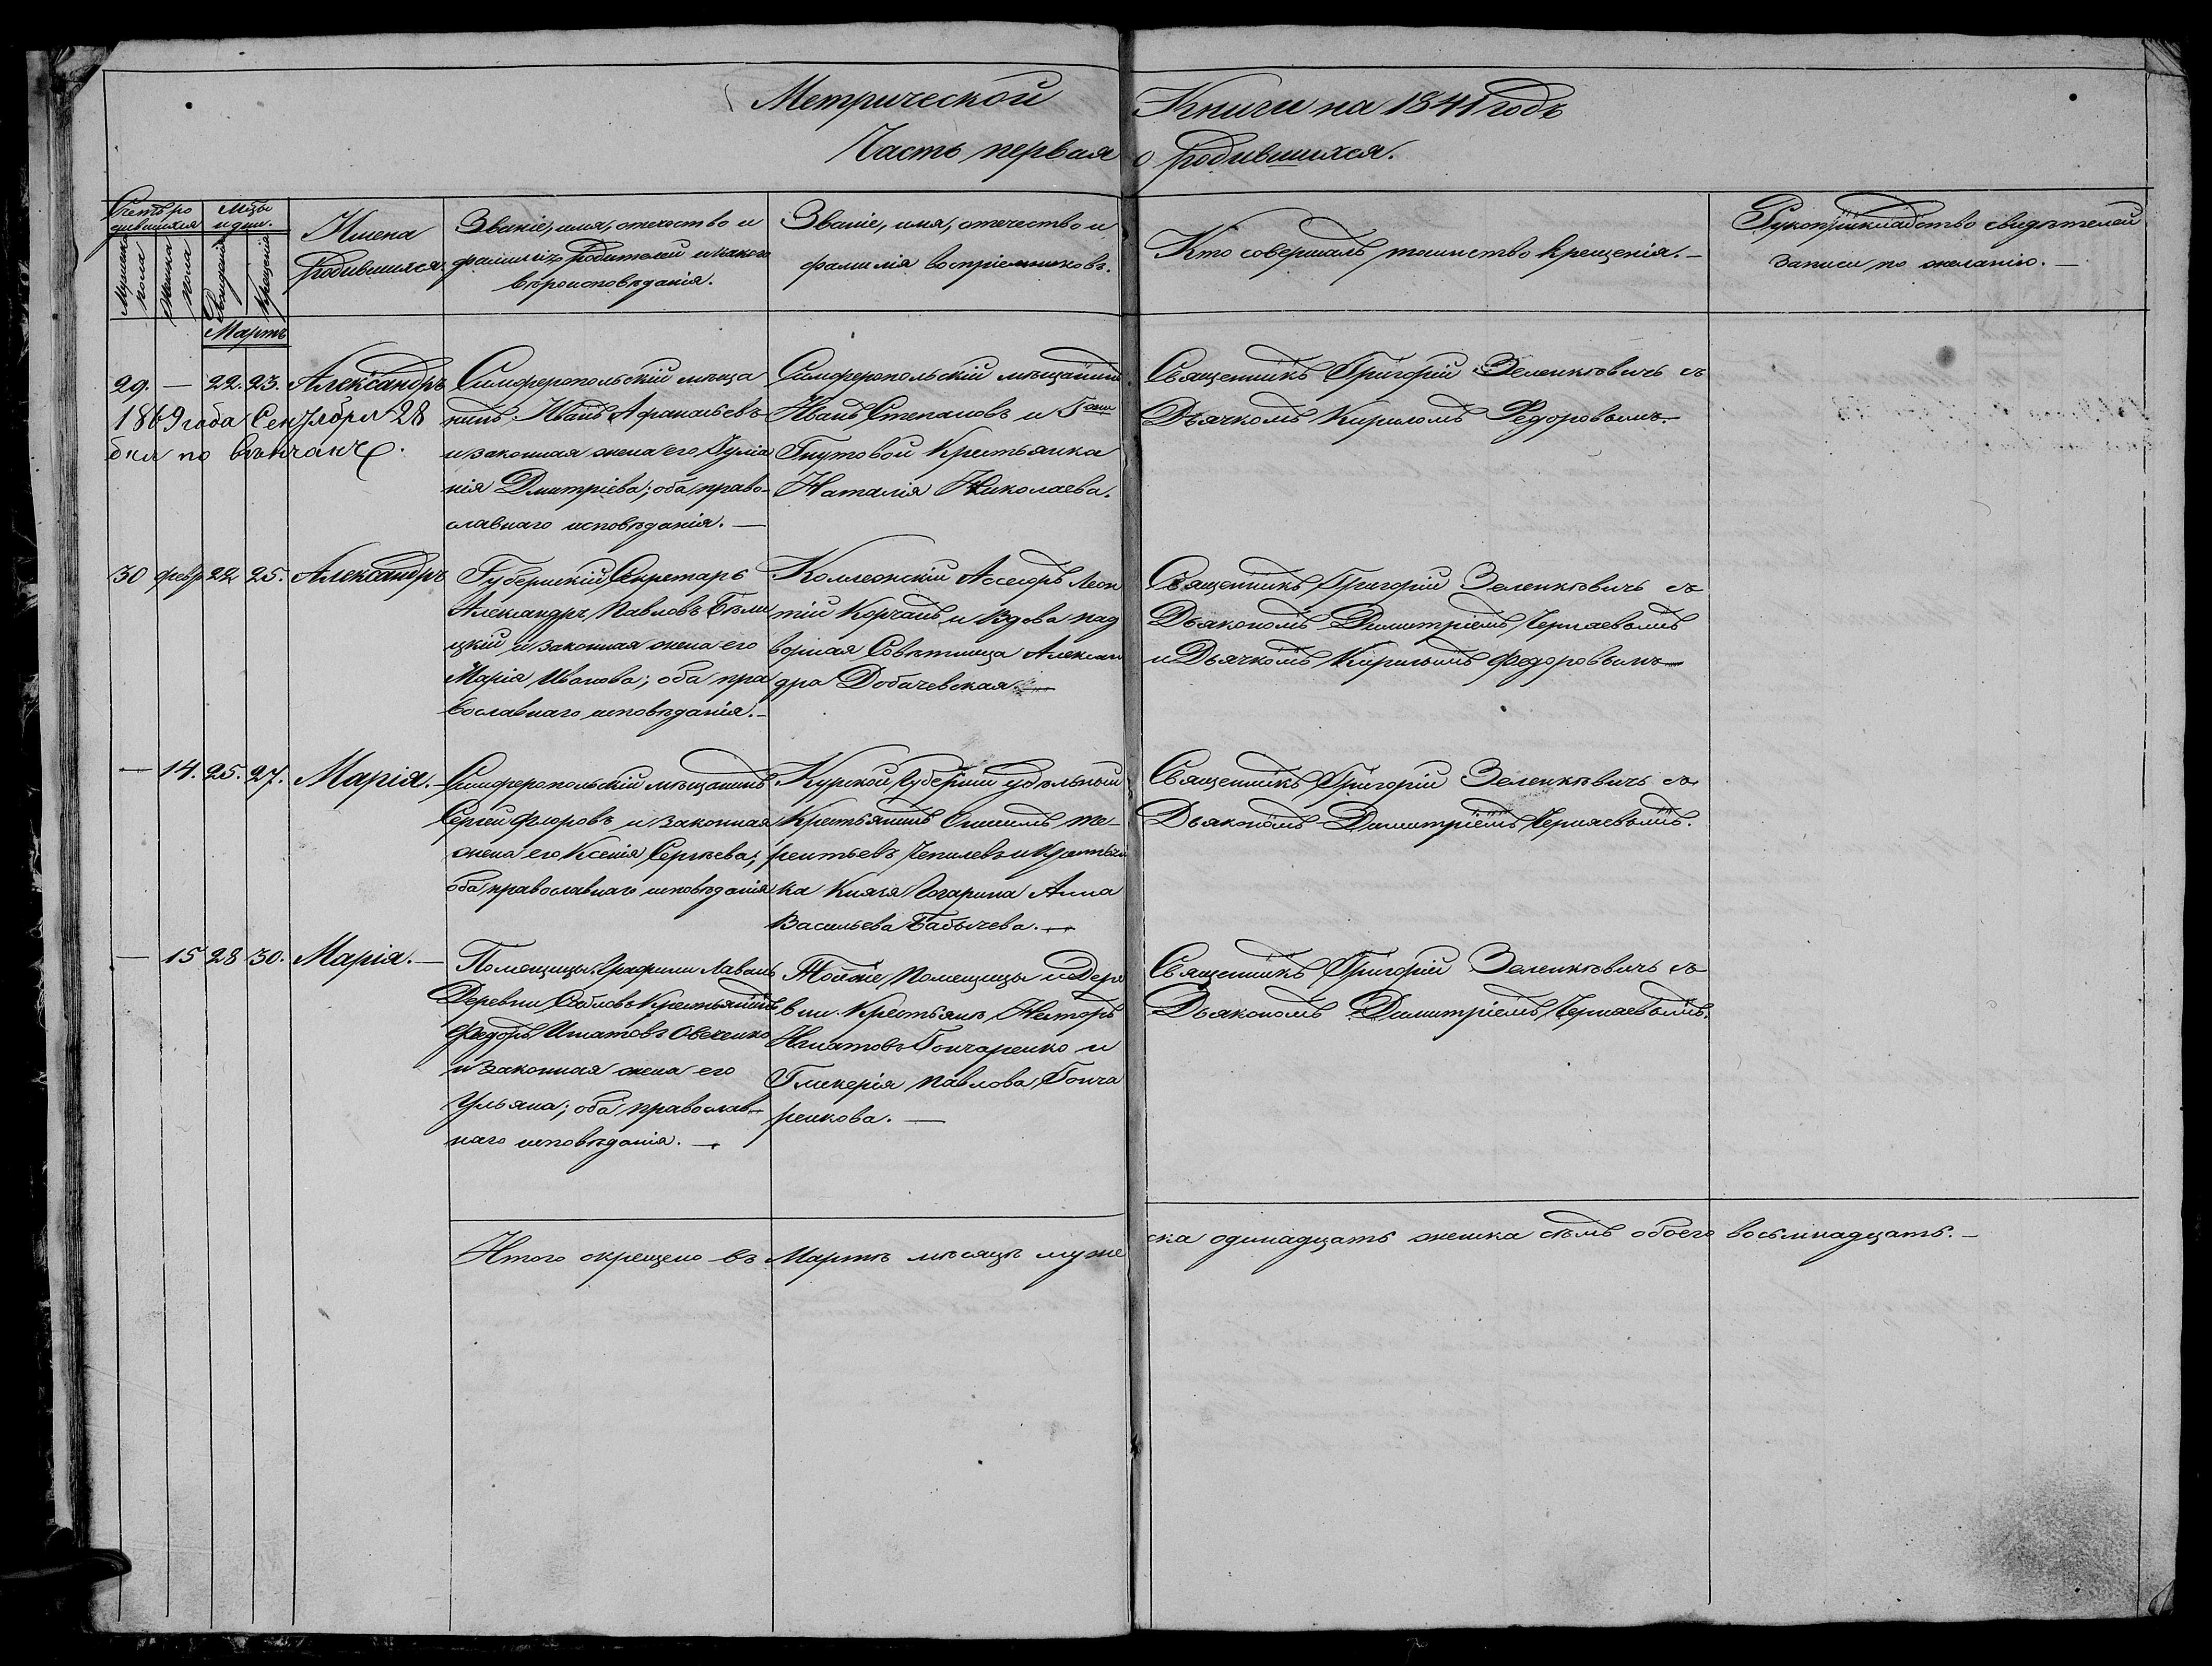 Метрической Книги на 1841 годъ
Часть первая о родившихся.
Счетъ ро
дившихся
Мужска
пола
Женска
пола
Мѣсяцы
и дни.
Рожденія
Крещенія
Имена
родившихся.
Званіе, имя, отчество и
фамилія родителей и какого
вѣроисповѣданія.
Званіе, имя, отчество и
фамилія воспріемниковъ.
Кто совершалъ таинство крещенія.
Рукоприкладство свидѣтелей
записи по желанію.
Мартъ
29. — 22. 23. Александръ
1869 года Сентября 28
дня по вѣнчанъ.
Симферопольскій мѣща
нинъ Иванъ Афанасьевъ
и законная жена его Іулiа
нія Дмитріева; оба право-
славнаго исповѣданія. —
Симферопольскій мѣщанинъ
Иванъ Степановъ и
Крестьянка
Наталія Николаева.
Священникъ Григорій Зеленкѣвичъ съ
Дьячкомъ Кириломъ Федоровымъ.
30 февр 22 25. Александръ
Губернскій Секретарь
Александръ Павловъ Бѣли
цкій и законная жена его
Марія Иванова; оба пра
вославнаго исповѣданія. —
Коллежскій Ассесоръ Леон
тій Корчанъ и Вдова над
ворная Совѣтница Алексан
дра Добачевская. —
Священникъ Григорій Зеленкѣвичъ съ
Дьякономъ Димитріемъ Черняевымъ
и Дьячкомъ Кириломъ Федоровымъ
— 14. 25. 27. Марія. —
Симферопольскій мѣщанинъ
Сергей Флоровъ и законная
жена его Ксенія Сергѣева;
оба православнаго исповѣданія
Курской Губерніи удѣльный
Крестьянинъ Онисимъ Те-
рентьевъ Чепилевъ и Крестьян
ка Князя Гогарина Анна
Васильева Бабычева. —
Священникъ Григорій Зеленкѣвичъ съ
Дьякономъ Димитріемъ Черняевымъ.
— 15 28 30. Марія. —
Помещицы Графини Лаваль
Деревни Крестьянинъ
Федоръ Игнатовъ
и законная жена его
Ульяна; оба православ-
наго исповѣданія. —
Тойже Помещицы и Дере
вни Крестьянъ Несторъ
Игнатовъ Гончаренко и
Гликерія Павлова Гонча
ренкова. —
Священникъ Григорій Зеленкѣвичъ съ
Дьякономъ Димитріемъ Черняевымъ.
Итого окрещено въ Мартѣ мѣсяцѣ мужеска одинадцать женска сѣмь обоего восьмнадцать. —